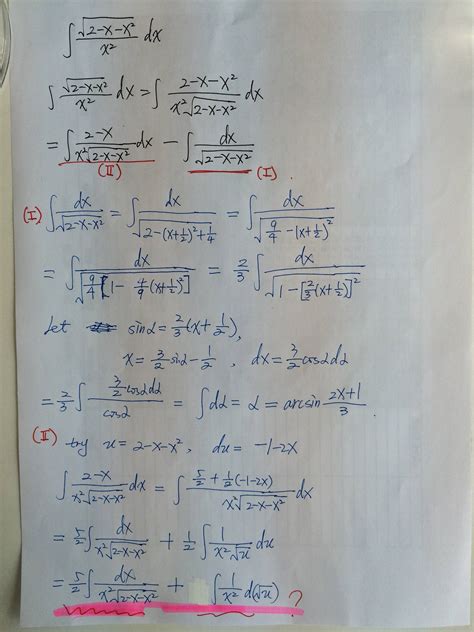 ∫ √(2-x-x²)/x² dx
∫ √(2-x-x²)/x² dx = ∫ (2-x-x²)/(x²√(2-x-x²)) dx
= ∫ (2-x)/(x²√(2-x-x²)) dx - ∫ dx/√(2-x-x²)
(II) (I).
(I) ∫ dx/√(2-x-x²) = ∫ dx/√(2-(x+1/2)²+1/4) = ∫ dx/√(9/4-(x+1/2)²)
= ∫ dx/√(9/4[1-4/9(x+1/2)²]) = 2/3 ∫ dx/√(1-[2/3(x+1/2)]²)
Let sinα = 2/3(x+1/2),
x = 3/2 sinα - 1/2, dx = 3/2 cosα dα
= 2/3 ∫ (3/2 cosα dα)/cosα = ∫ dα = α = arcsin (2x+1)/3.
(II) try u = 2-x-x², du = -1-2x
∫ (2-x)/(x²√(2-x-x²)) dx = ∫ (5/2+1/2(-1-2x))/(x²√(2-x-x²)) dx
= 5/2 ∫ dx/(x²√(2-x-x²)) + 1/2 ∫ 1/(x²√u) du
= 5/2 ∫ dx/(x²√(2-x-x²)) + ∫ 1/x² d(√u) ?